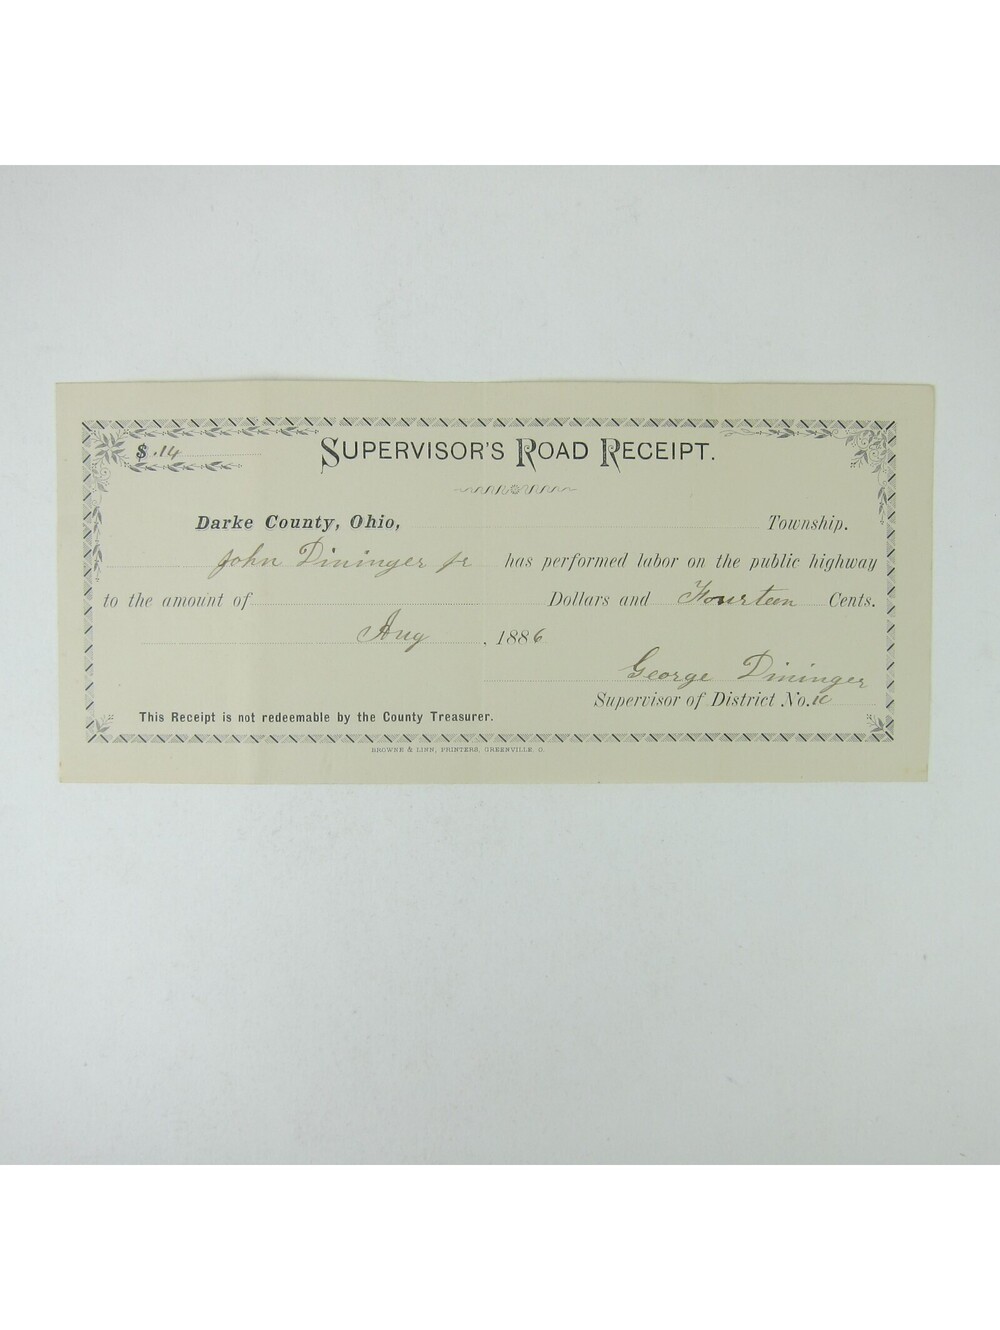 $ .14
SUPERVISOR'S ROAD RECEIPT.
Darke County, Ohio, Township.
John Dininger jr has performed labor on the public highway
to the amount of Dollars and Fourteen Cents.
Aug , 1886
George Dininger
Supervisor of District No.
This Receipt is not redeemable by the County Treasurer.
BROWNE & LINN, PRINTERS, GREENVILLE, O.